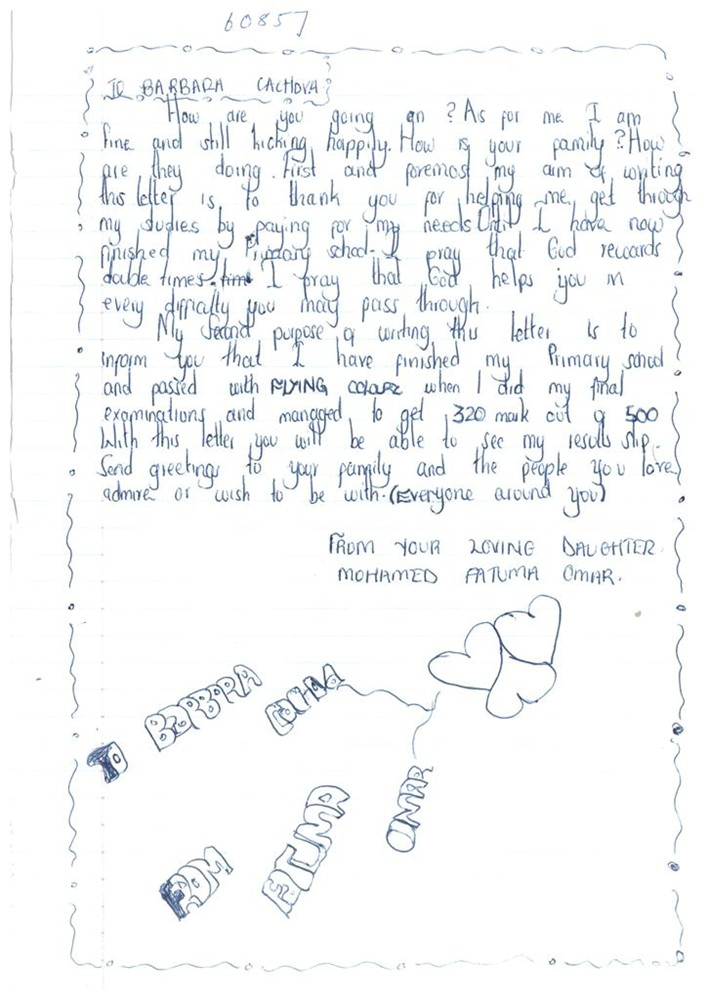 60857
TO BARBARA CACHOVA:
How are you going on ? As for me I am
fine and still kicking happily. How is your family ? How
are they doing . First and foremost my aim of writing
this letter is to thank you for helping me get through
my studies by paying for my needs Until I have now
finished my Primary school. I pray that God rewards
double times. time I pray that God helps you in
every difficalty you may pass through.
My Second purpose of writing this letter is to
inform you that I have finished my Primary school
and passed with FLYING COLOURZ when I did my final
examinations and managed to get 320 mark out of 500
With this letter you will be able to see my results slip.
Send greetings to your family and the people you love,
admire or wish to be with. (Everyone around you)
FROM YOUR LOVING DAUGHTER.
MOHAMED FATUMA OMAR.
TO BARBARA CACHOVA
FROM FATUMA OMAR